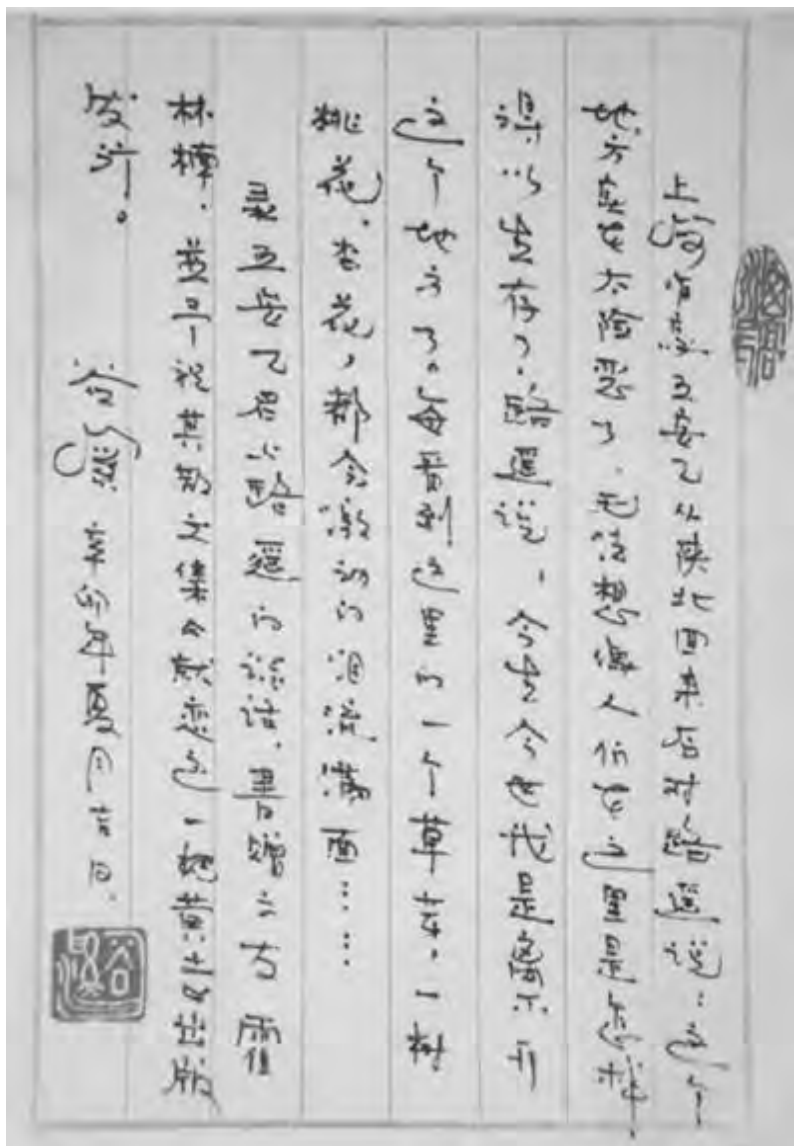 上海作家王安乙从陕北回来后对路遥说：这个
地方实在太险恶了，无法想像人们在这里是怎样
得以生存了。路遥说，今生今世我是离不开
这个地方了。每看到这里的一个草芽，一树
桃花、杏花，都会激动的泪流满面……
录王安乙君与路遥的谈话，书赠
林楠，其新文集一抱黄土出版
发行。
谷溪 辛卯年夏月吉日。
谷溪